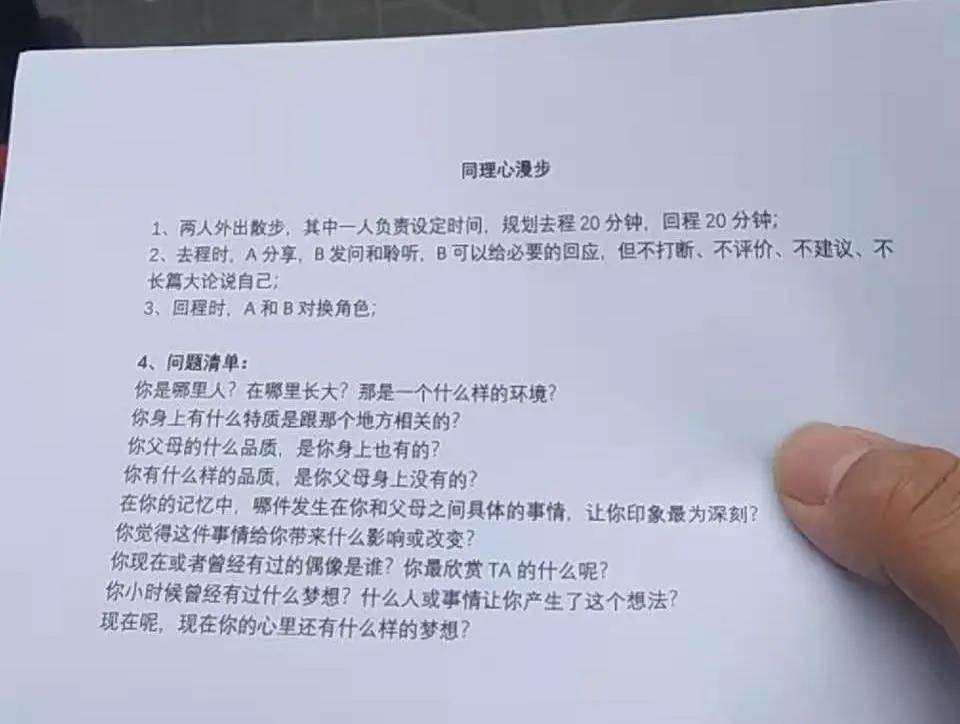 同理心漫步
1、两人外出散步，其中一人负责设定时间，规划去程 20 分钟，回程 20 分钟；
2、去程时，A 分享，B 发问和聆听，B 可以给必要的回应，但不打断、不评价、不建议、不
长篇大论说自己；
3、回程时，A 和 B 对换角色；
4、问题清单：
你是哪里人？在哪里长大？那是一个什么样的环境？
你身上有什么特质是跟那个地方相关的？
你父母的什么品质，是你身上也有的？
你有什么样的品质，是你父母身上没有的？
在你的记忆中，哪件发生在你和父母之间具体的事情，让你印象最为深刻？
你觉得这件事情给你带来什么影响或改变？
你现在或者曾经有过的偶像是谁？你最欣赏 TA 的什么呢？
你小时候曾经有过什么梦想？什么人或事情让你产生了这个想法？
现在呢，现在你的心里还有什么样的梦想？